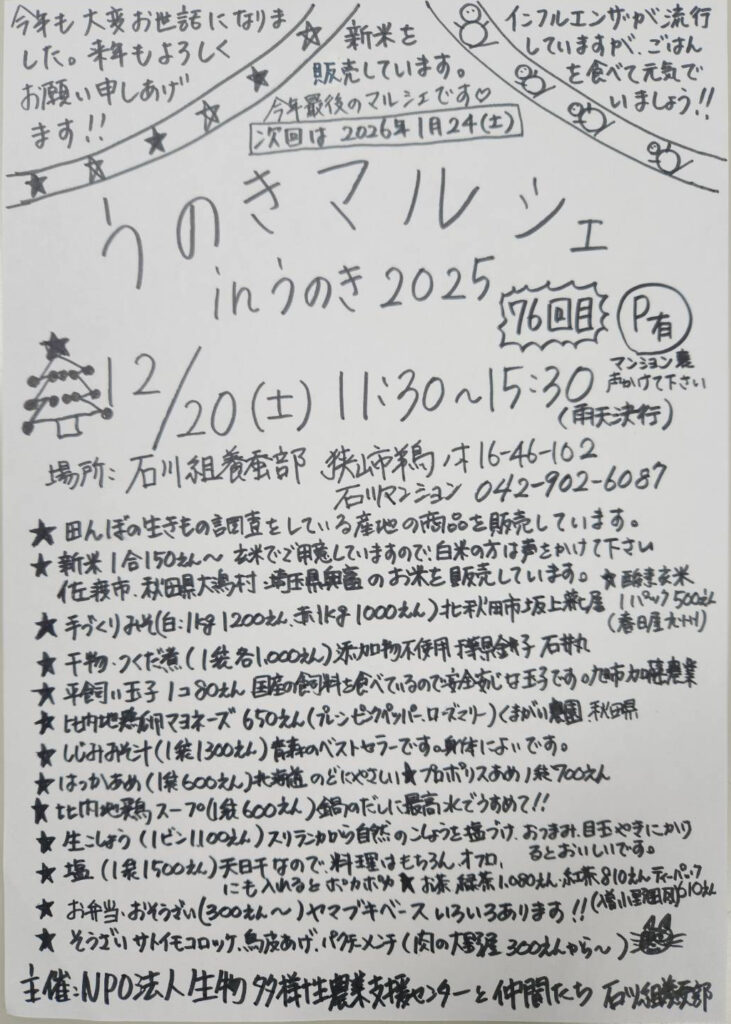 今年も大変お世話になりま
した。来年もよろしく
お願い申しあげ
ます!!
新米を
販売しています。
今年最後のマルシェです♡
次回は 2026年1月24(土)
インフルエンザが流行
していますが、ごはん
を食べて元気で
いましょう!!
うのきマルシェ
inうのき2025
76回目
P有
マンション裏
声かけて下さい
12/20(土) 11:30~15:30
(雨天決行)
場所: 石川組養蚕部 狭山市鵜ノ木16-46-102
石川マンション 042-902-6087
★ 田んぼの生きもの調査をしている産地の商品を販売しています。
★ 新米1合150えん~ 玄米でご用意していますので、白米の方は声をかけて下さい
佐渡市、秋田県大潟村、埼玉県 のお米を販売しています。
★ 酵素玄米
1パック500えん
(春日屋
★ 手づくりみそ(白:1kg 1200えん、赤1kg 1000えん)北秋田市坂上
★ 干物・つくだ煮(1袋各1,000えん)添加物不使用 千葉県銚子 石井丸
★ 平飼い玉子 1コ80えん 国産の飼料を食べているので安全安心な玉子です。旭市加藤農業
★ 比内地鶏卵マヨネーズ 650えん(プレーン・ピンクペッパー、ローズマリー)くまがい農園、秋田県
★ しじみみそ汁(1袋1300えん)青森のベストセラーです。身体によいです。
★ はっかあめ(1袋600えん)北海道 のどにやさしい★プロポリスあめ1袋700えん
★ 比内地鶏スープ(1袋600えん)鍋のだしに最高 水でうすめて!!
★ 生こしょう(1ビン1100えん)スリランカから自然のこしょうを塩づけ、おつまみ、目玉やきにかけ
るとおいしいです。
★ 塩(1袋1500えん)天日干なので、料理はもちろん、オフロ、
にも入れるとポカポカ ★ お茶、緑茶1,080えん・紅茶810えん・ティーパック
610えん
★ お弁当・おそうざい(300えん~)ヤマブキベース いろいろあります!!
★ そうざい サトイモコロッケ、鳥皮あげ、パクチーメンチ(肉の大野屋300えんから~)
主催:NPO法人生物多様性農業支援センターと仲間たち 石川組養蚕部